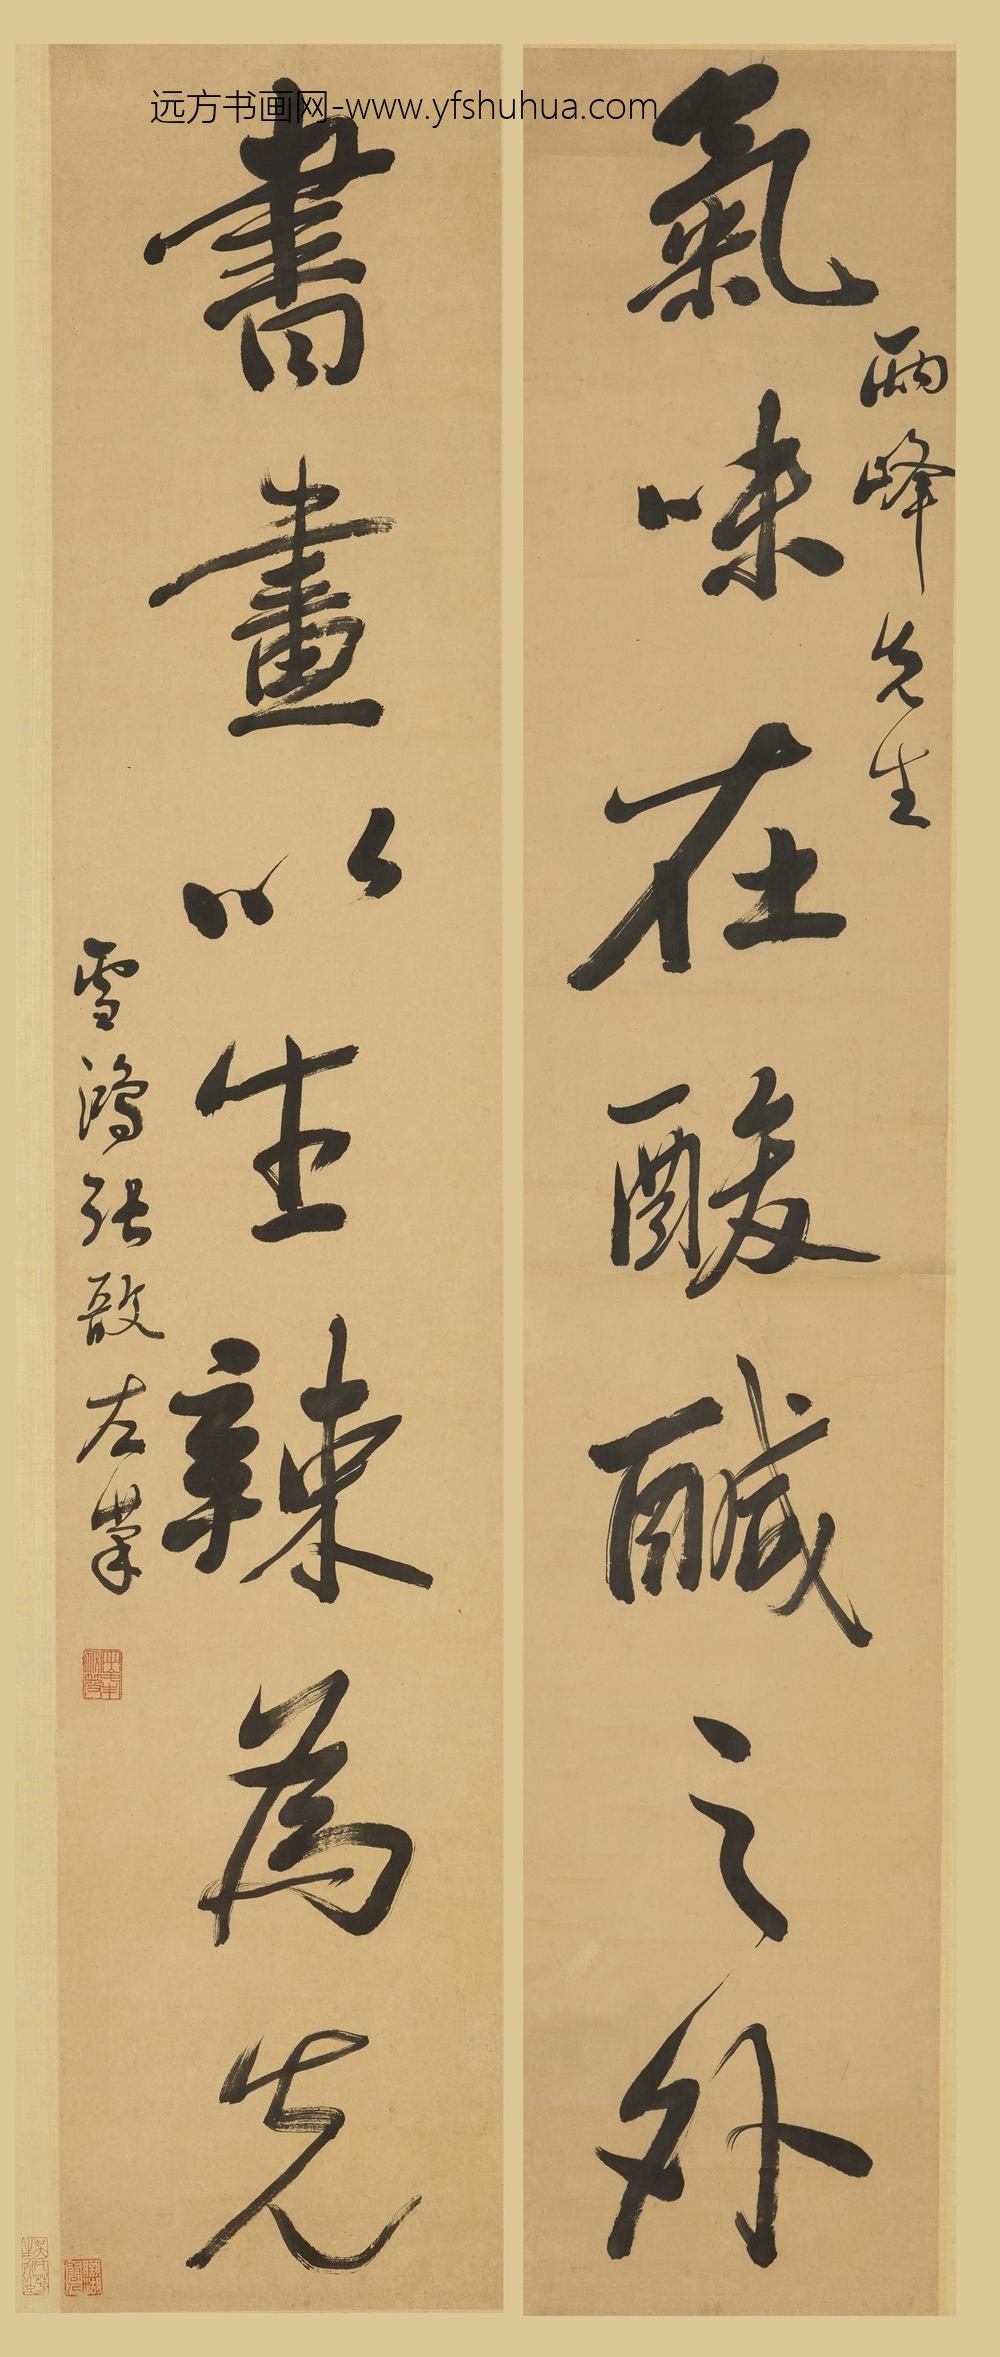 远方书画网-www.yfshuhua.com
氣味在酸鹹之外
兩峰先生
書畫以生辣為先
雪鴻張敔左筆